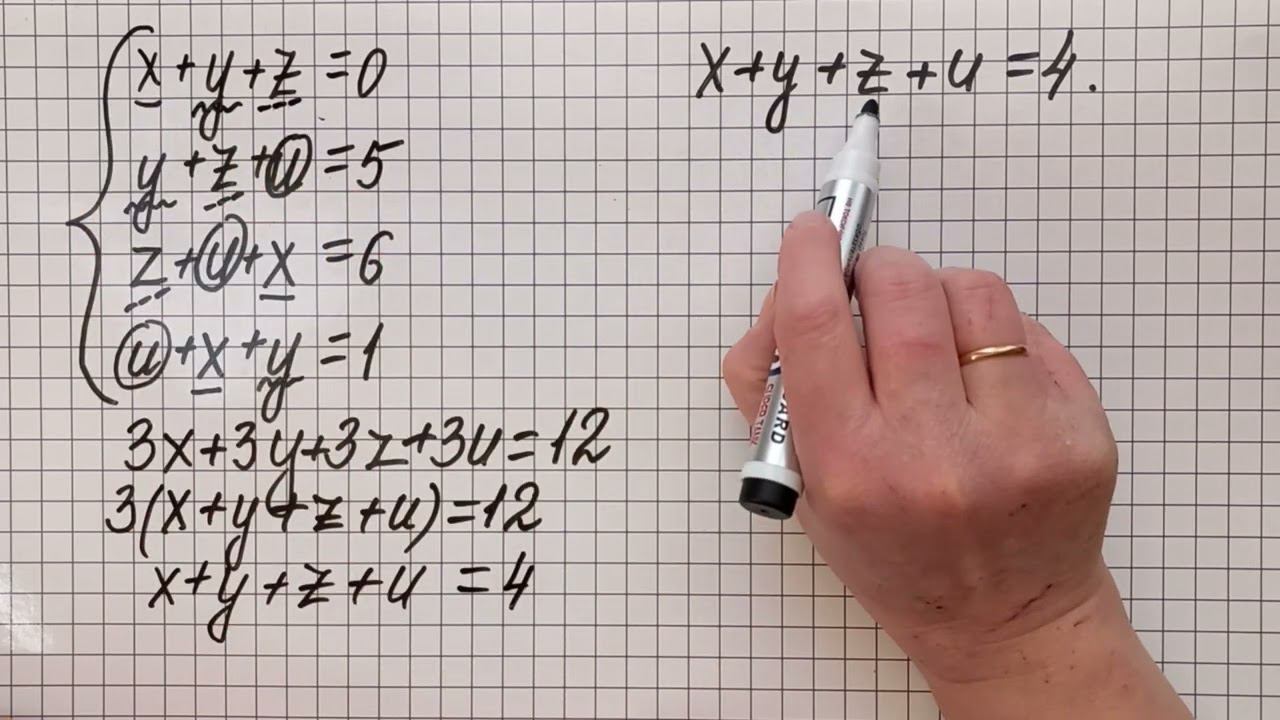 x + y + z = 0
y + z + u = 5
z + u + x = 6
u + x + y = 1
3x+3y+3z+3u=12
3(x+y+z+u)=12
x+y+z+u = 4
x+y+z+u=4.